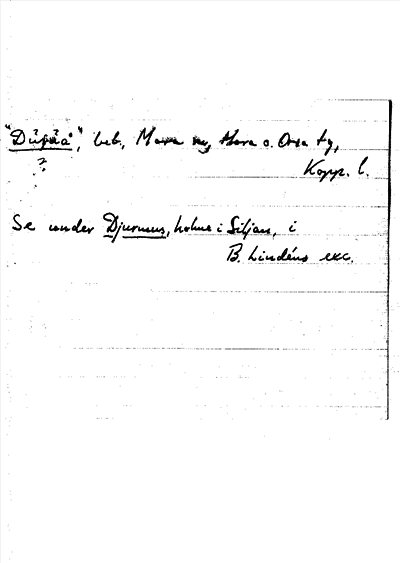 ", beb., Mora sn, Mora o. Orsa tg,
?
Kopp. l.
Se under Djurmus, holme i Siljan, i
B. Lindéns exc.